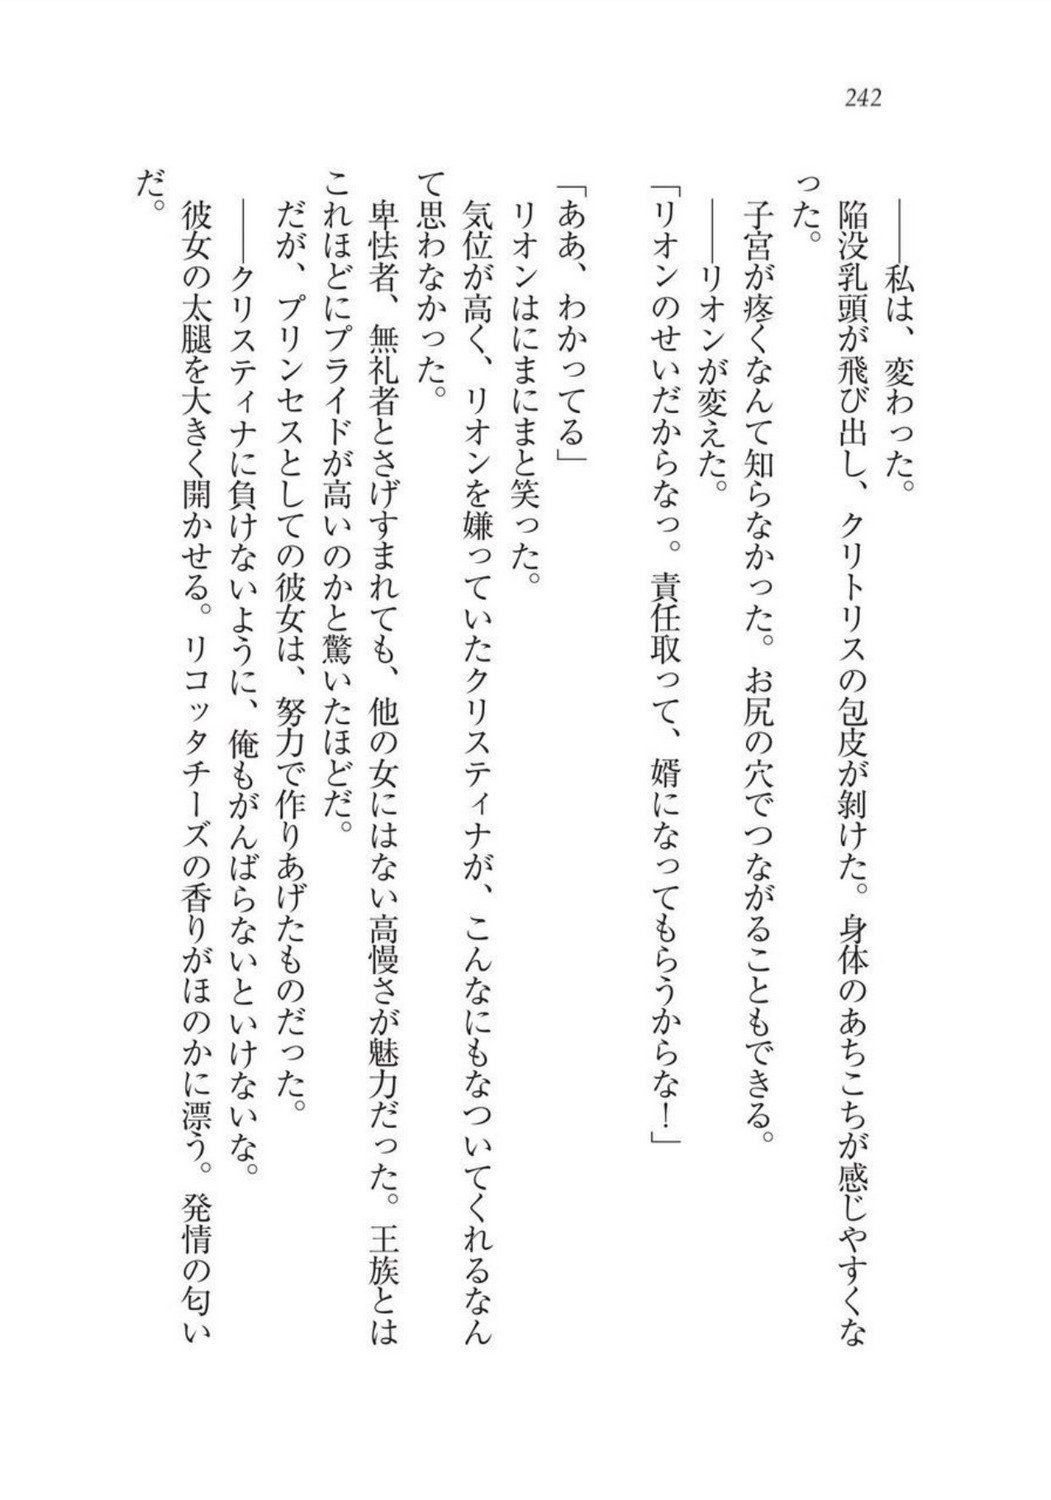 242
――私は、変わった。
陥没乳頭が飛び出し、クリトリスの包皮が剝けた。身体のあちこちが感じやすくな
った。
子宮が疼くなんて知らなかった。お尻の穴でつながることもできる。
――リオンが変えた。
「リオンのせいだからなっ。責任取って、婿になってもらうからな！」
「ああ、わかってる」
リオンはにまにまと笑った。
気位が高く、リオンを嫌っていたクリスティナが、こんなにもなついてくれるなん
て思わなかった。
卑怯者、無礼者とさげすまれても、他の女にはない高慢さが魅力だった。王族とは
これほどにプライドが高いのかと驚いたほどだ。
だが、プリンセスとしての彼女は、努力で作りあげたものだった。
――クリスティナに負けないように、俺もがんばらないといけないな。
彼女の太腿を大きく開かせる。リコッタチーズの香りがほのかに漂う。発情の匂い
だ。